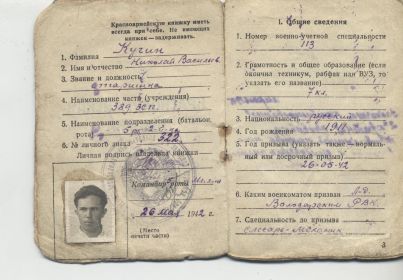 Красноармейскую книжку иметь
всегда при себе. Не имеющих
книжек — задерживать.
1. Фамилия Кучин
2. Имя и отчество Николай Василье
3. Звание и должность
старшина
4. Наименование части (учреждения)
389 зсп
5. Наименование подразделения (батальон,
рота)
6. № личного знака 322
Личная подпись владельца книжки
Командир роты
26 мая 1942 г.
(Место
печати части)
I. Общие сведения
1. Номер военно-учетной специальности
113
2. Грамотность и общее образование (если
окончил техникум, рабфак или ВУЗ, то
указать его название)
7 кл.
3. Национальность русский
4. Год рождения 1911
5. Год призыва (указать также — нормаль-
ный или досрочный призыв)
26-05-42
6. Каким военкоматом призван
Володарский РВК
7. Специальность до призыва
слесарь-механик
3